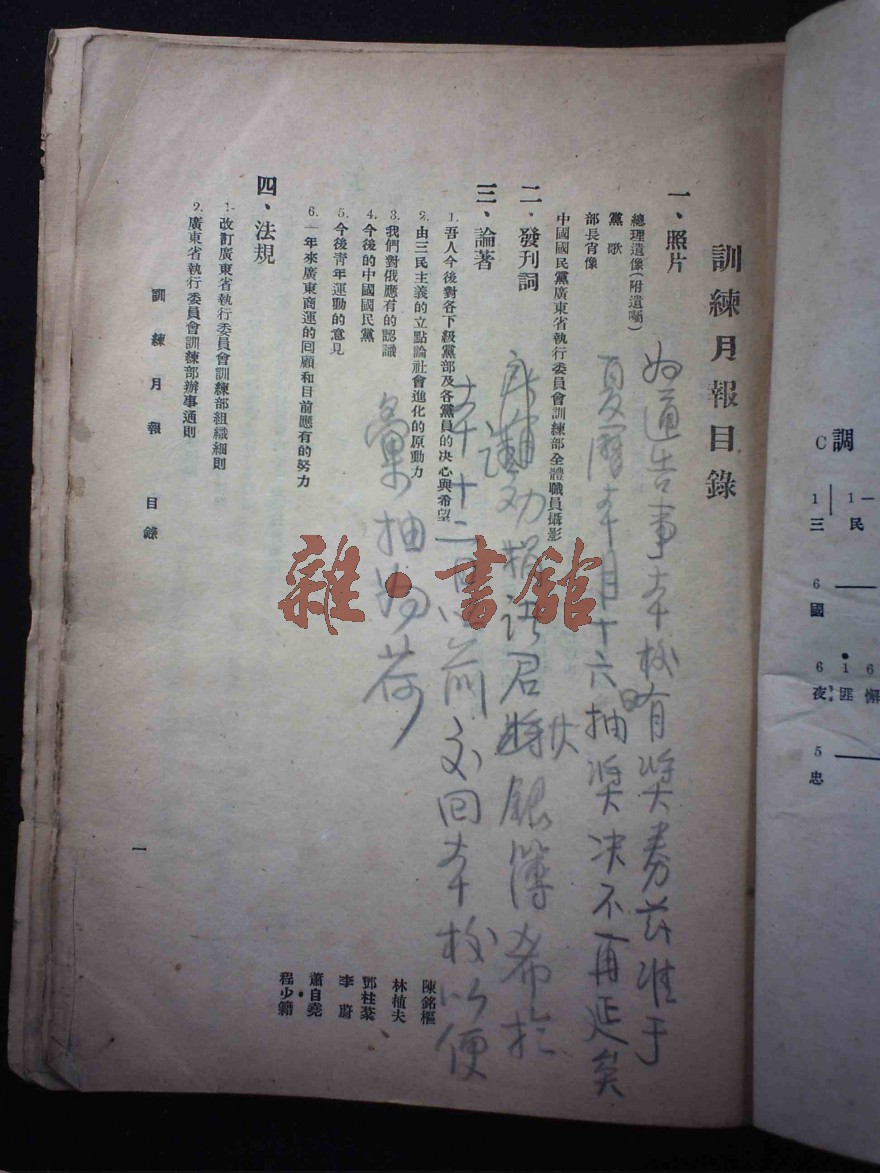 訓練月報目錄
一、照片
總理遺像(附遺囑)
黨 歌
部長肖像
中國國民黨廣東省執行委員會訓練部全體職員攝影
二、發刊詞
三、論著
1. 吾人今後對各下級黨部及各黨員的决心與希望 陳銘樞
2. 由三民主義的立點論社會進化的原動力 林植夫
3. 我們對俄應有的認識 鄧柱燊
4. 今後的中國國民黨 李 蔚
5. 今後青年運動的意見 蕭自堯
6. 一年來廣東商運的回顧和目前應有的努力 程少籍
四、法規
1. 改訂廣東省執行委員會訓練部組織細則
2. 廣東省執行委員會訓練部辦事通則
訓練月報 目錄
一
為通告事本校有獎券茲准于
夏曆本月十六抽獎决不再延矣
勸捐諸君將銀簿希於
本十二日以前交回本校以便
彙抽為荷
雜·書館
C調
1 1一
三 民
6
國
6 1 6
夜 匪 懈
5
忠